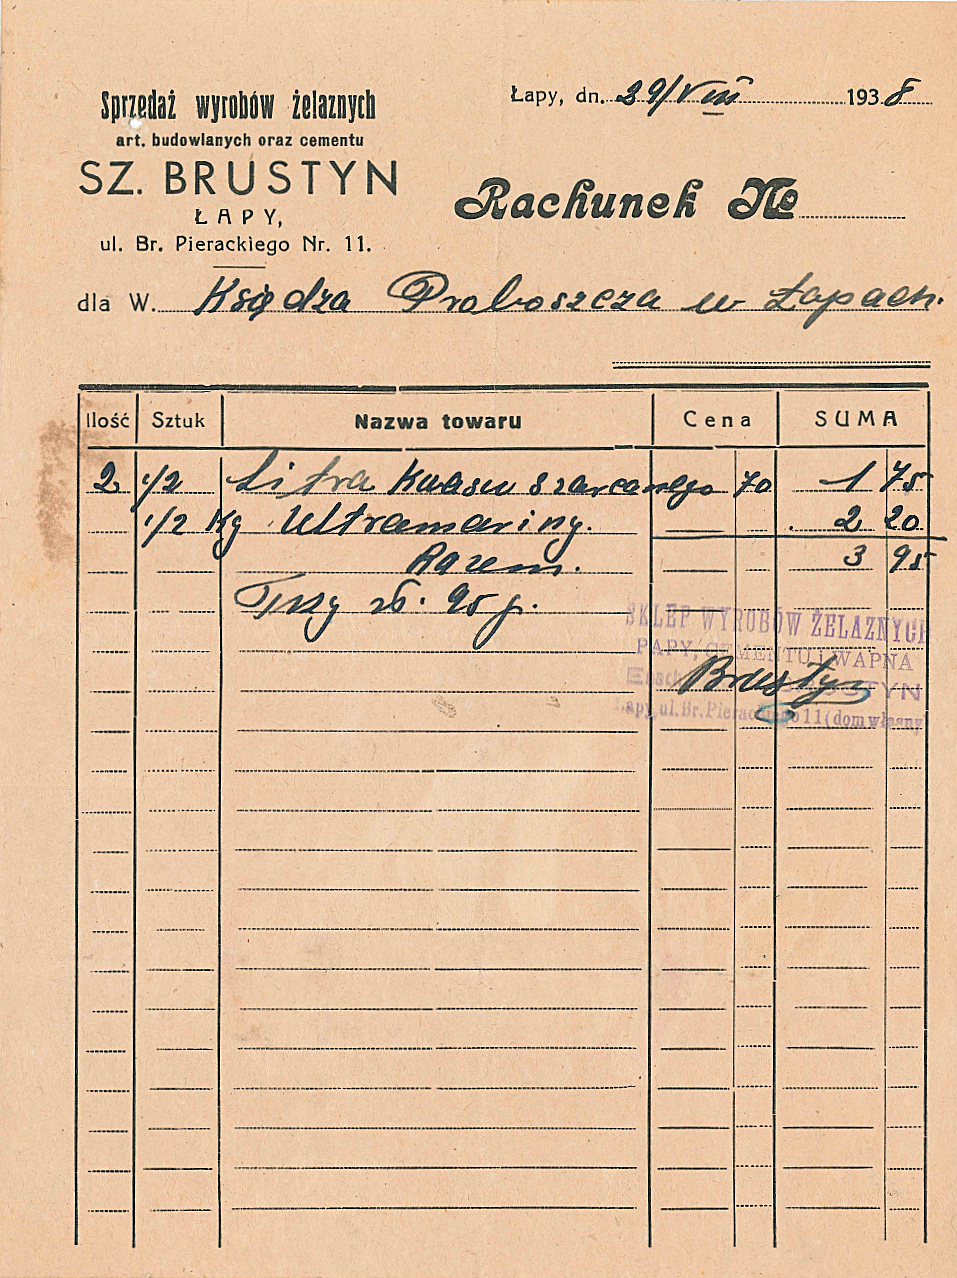 Sprzedaż wyrobów żelaznych
art. budowlanych oraz cementu
SZ. BRUSTYN
ŁAPY,
ul. Br. Pierackiego Nr. 11.
Łapy, dn. 29/VIII 1938
Rachunek №
dla W. Księdza Proboszcza w Łapach.
Ilość Sztuk Nazwa towaru Cena SUMA
2 1/2 Litra Kwasu szarcanego 70 1 75
1/2 Kg Ultramariny. 2 20
Razem. 3 95
Trzy zł. 95 g.
SKLEP WYROBÓW ŻELAZNYCH
PAPY, CEMENTU i WAPNA
Brustyn
Łapy, ul. Br. Pierackiego 11 (dom własny)